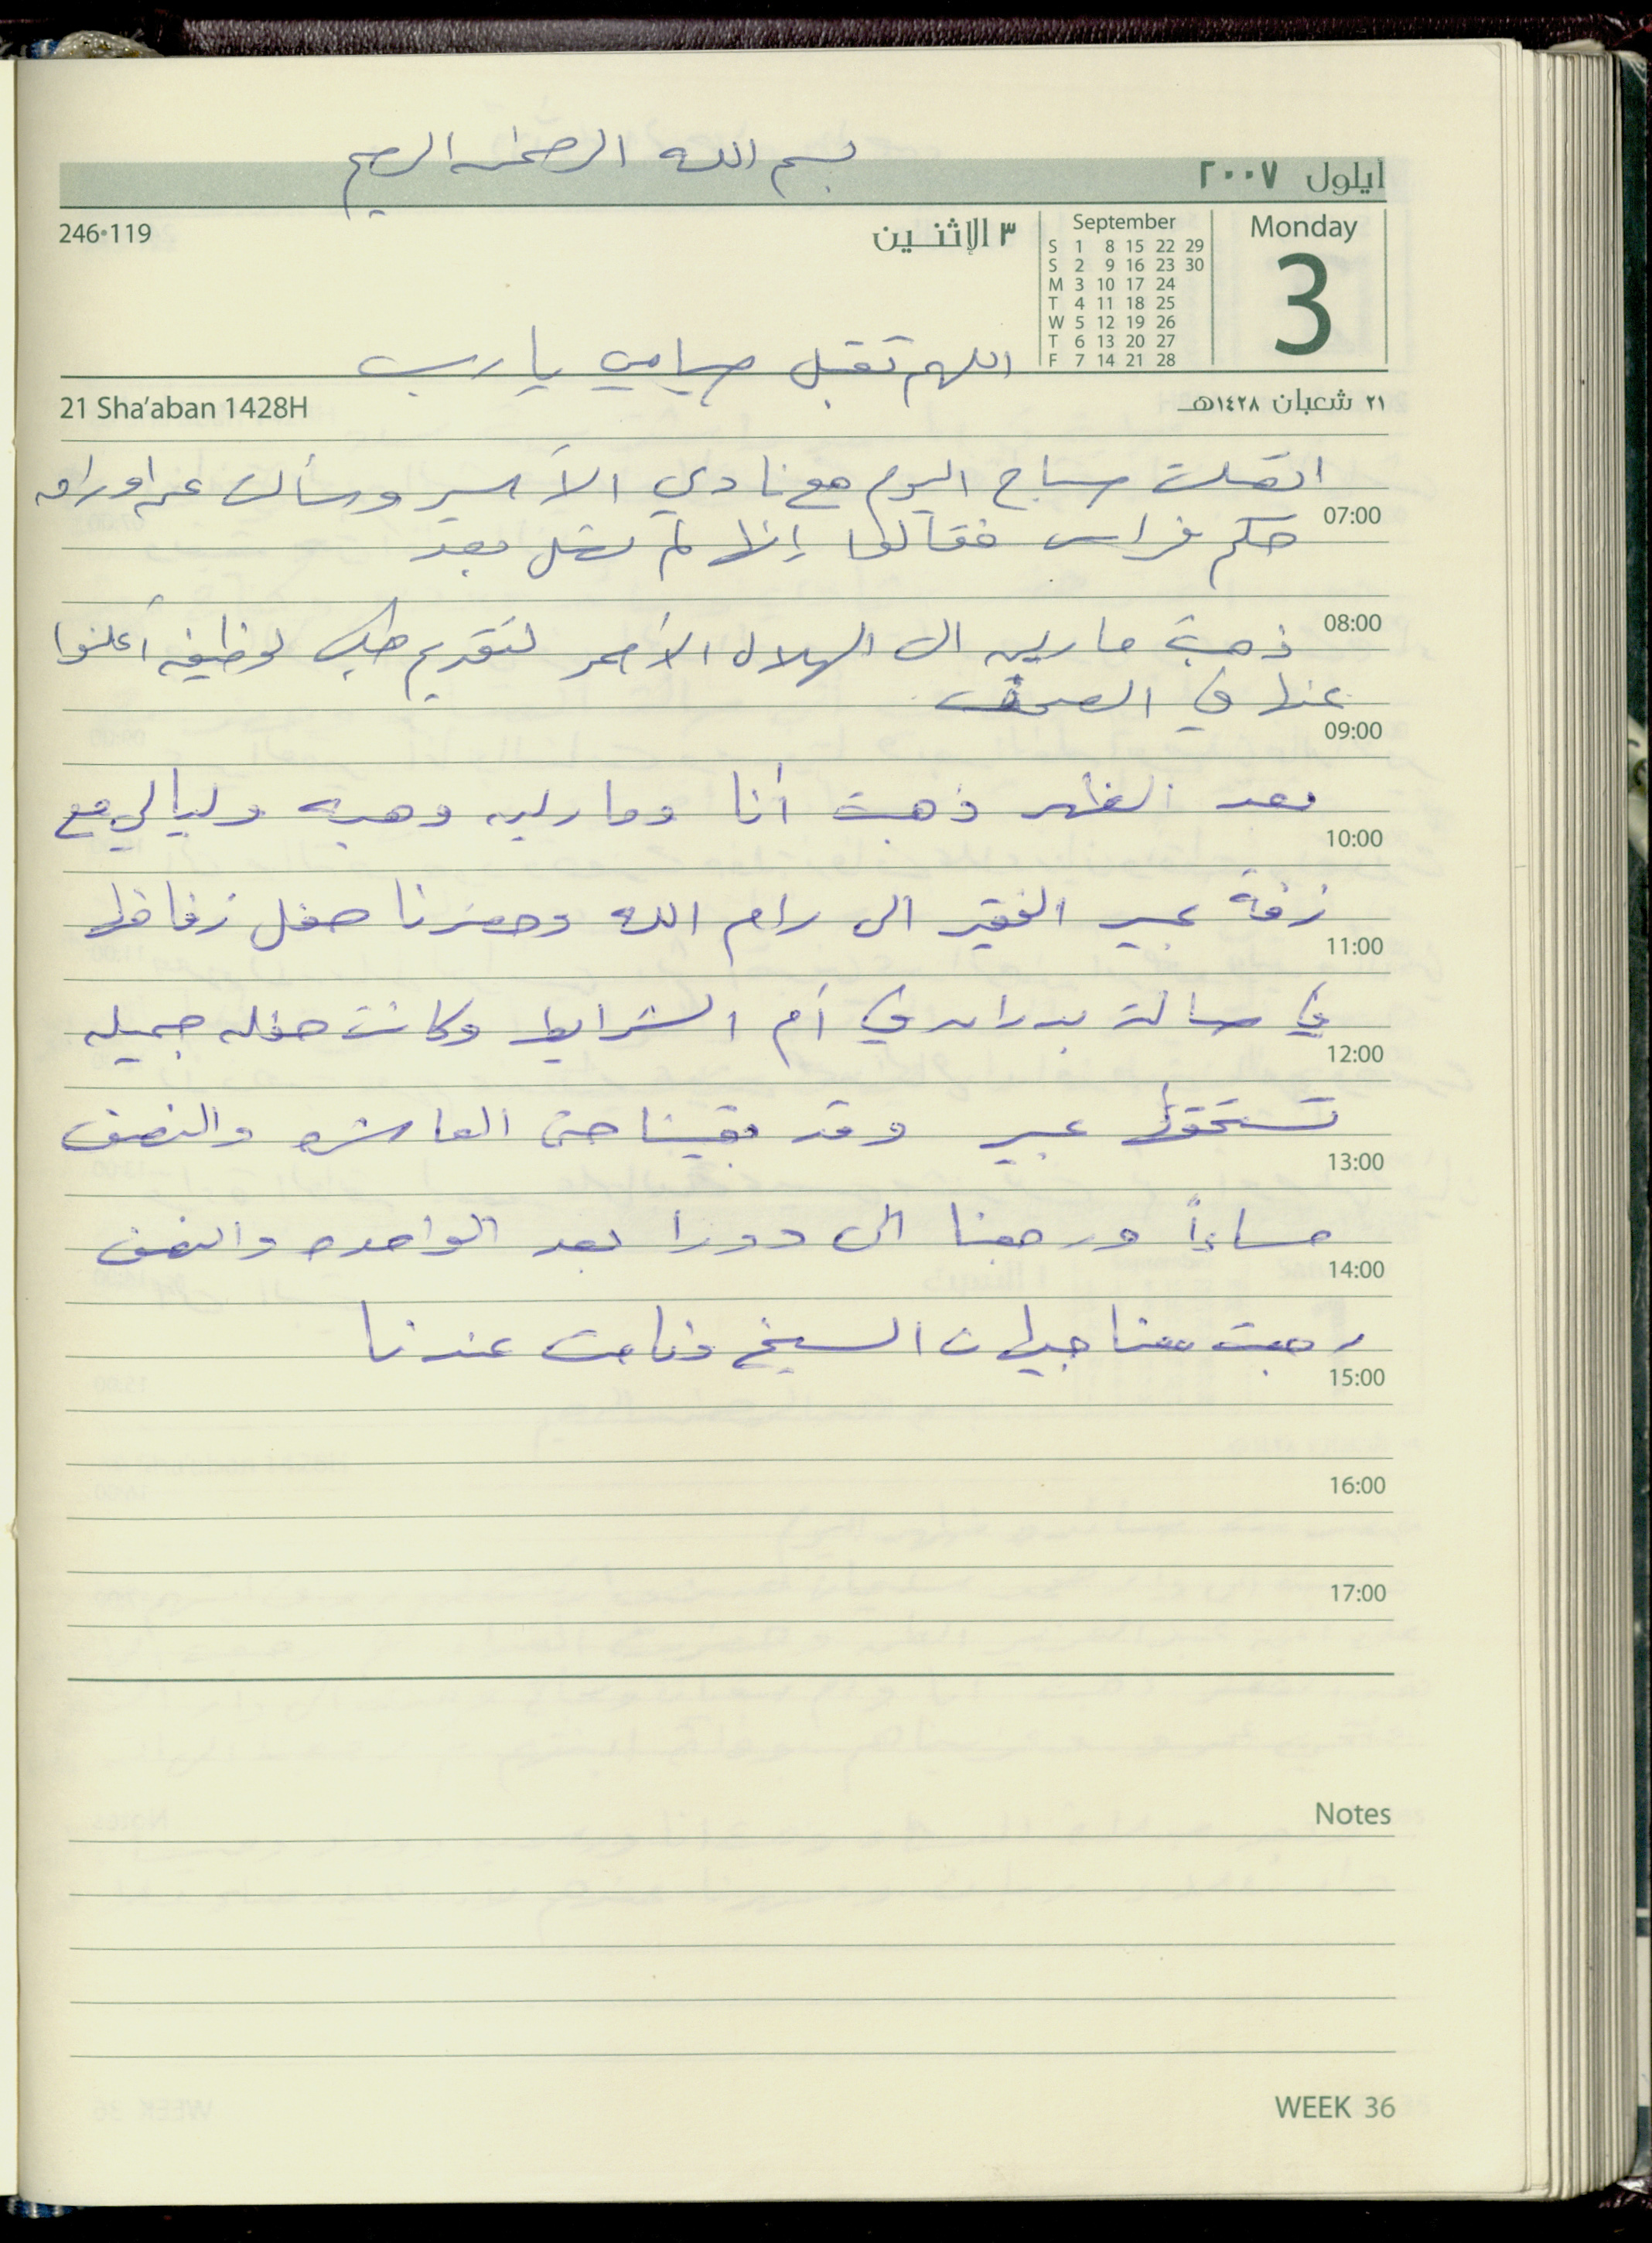 بسم الله الرحمن الرحيم
ايلول ٢٠٠٧
Monday
3
September
S 1 8 15 22 29
S 2 9 16 23 30
M 3 10 17 24
T 4 11 18 25
W 5 12 19 26
T 6 13 20 27
F 7 14 21 28
٣ الإثنـين
246•119
اللهم تقبل صيامي يا رب
٢١ شعبان ١٤٢٨هـ
21 Sha'aban 1428H
اتصلت صباح اليوم مع نادي الأسير وسألت عن اوراق
07:00
حكم فراس فقالوا إنها لم تصل بعد
08:00
ذهبت مارلين الى الهلال الأحمر لتقديم طلب لوظيفه أعلنوا
عنها في الصحف
09:00
بعد الظهر ذهبت أنا ومارلين وهبه وليالي مع
10:00
زفة عبير الفقير الى رام الله وحضرنا حفل زفافها
11:00
في صالة في أم الشرايط وكانت حفله جميله
12:00
تستحقها عبير وقد بقينا حتى العاشره والنصف
13:00
مساءاً ورجعنا الى دورا بعد الواحده والنصف
14:00
رجعت معنا جيهان الشيخ ونامت عندنا
15:00
16:00
17:00
Notes
WEEK 36